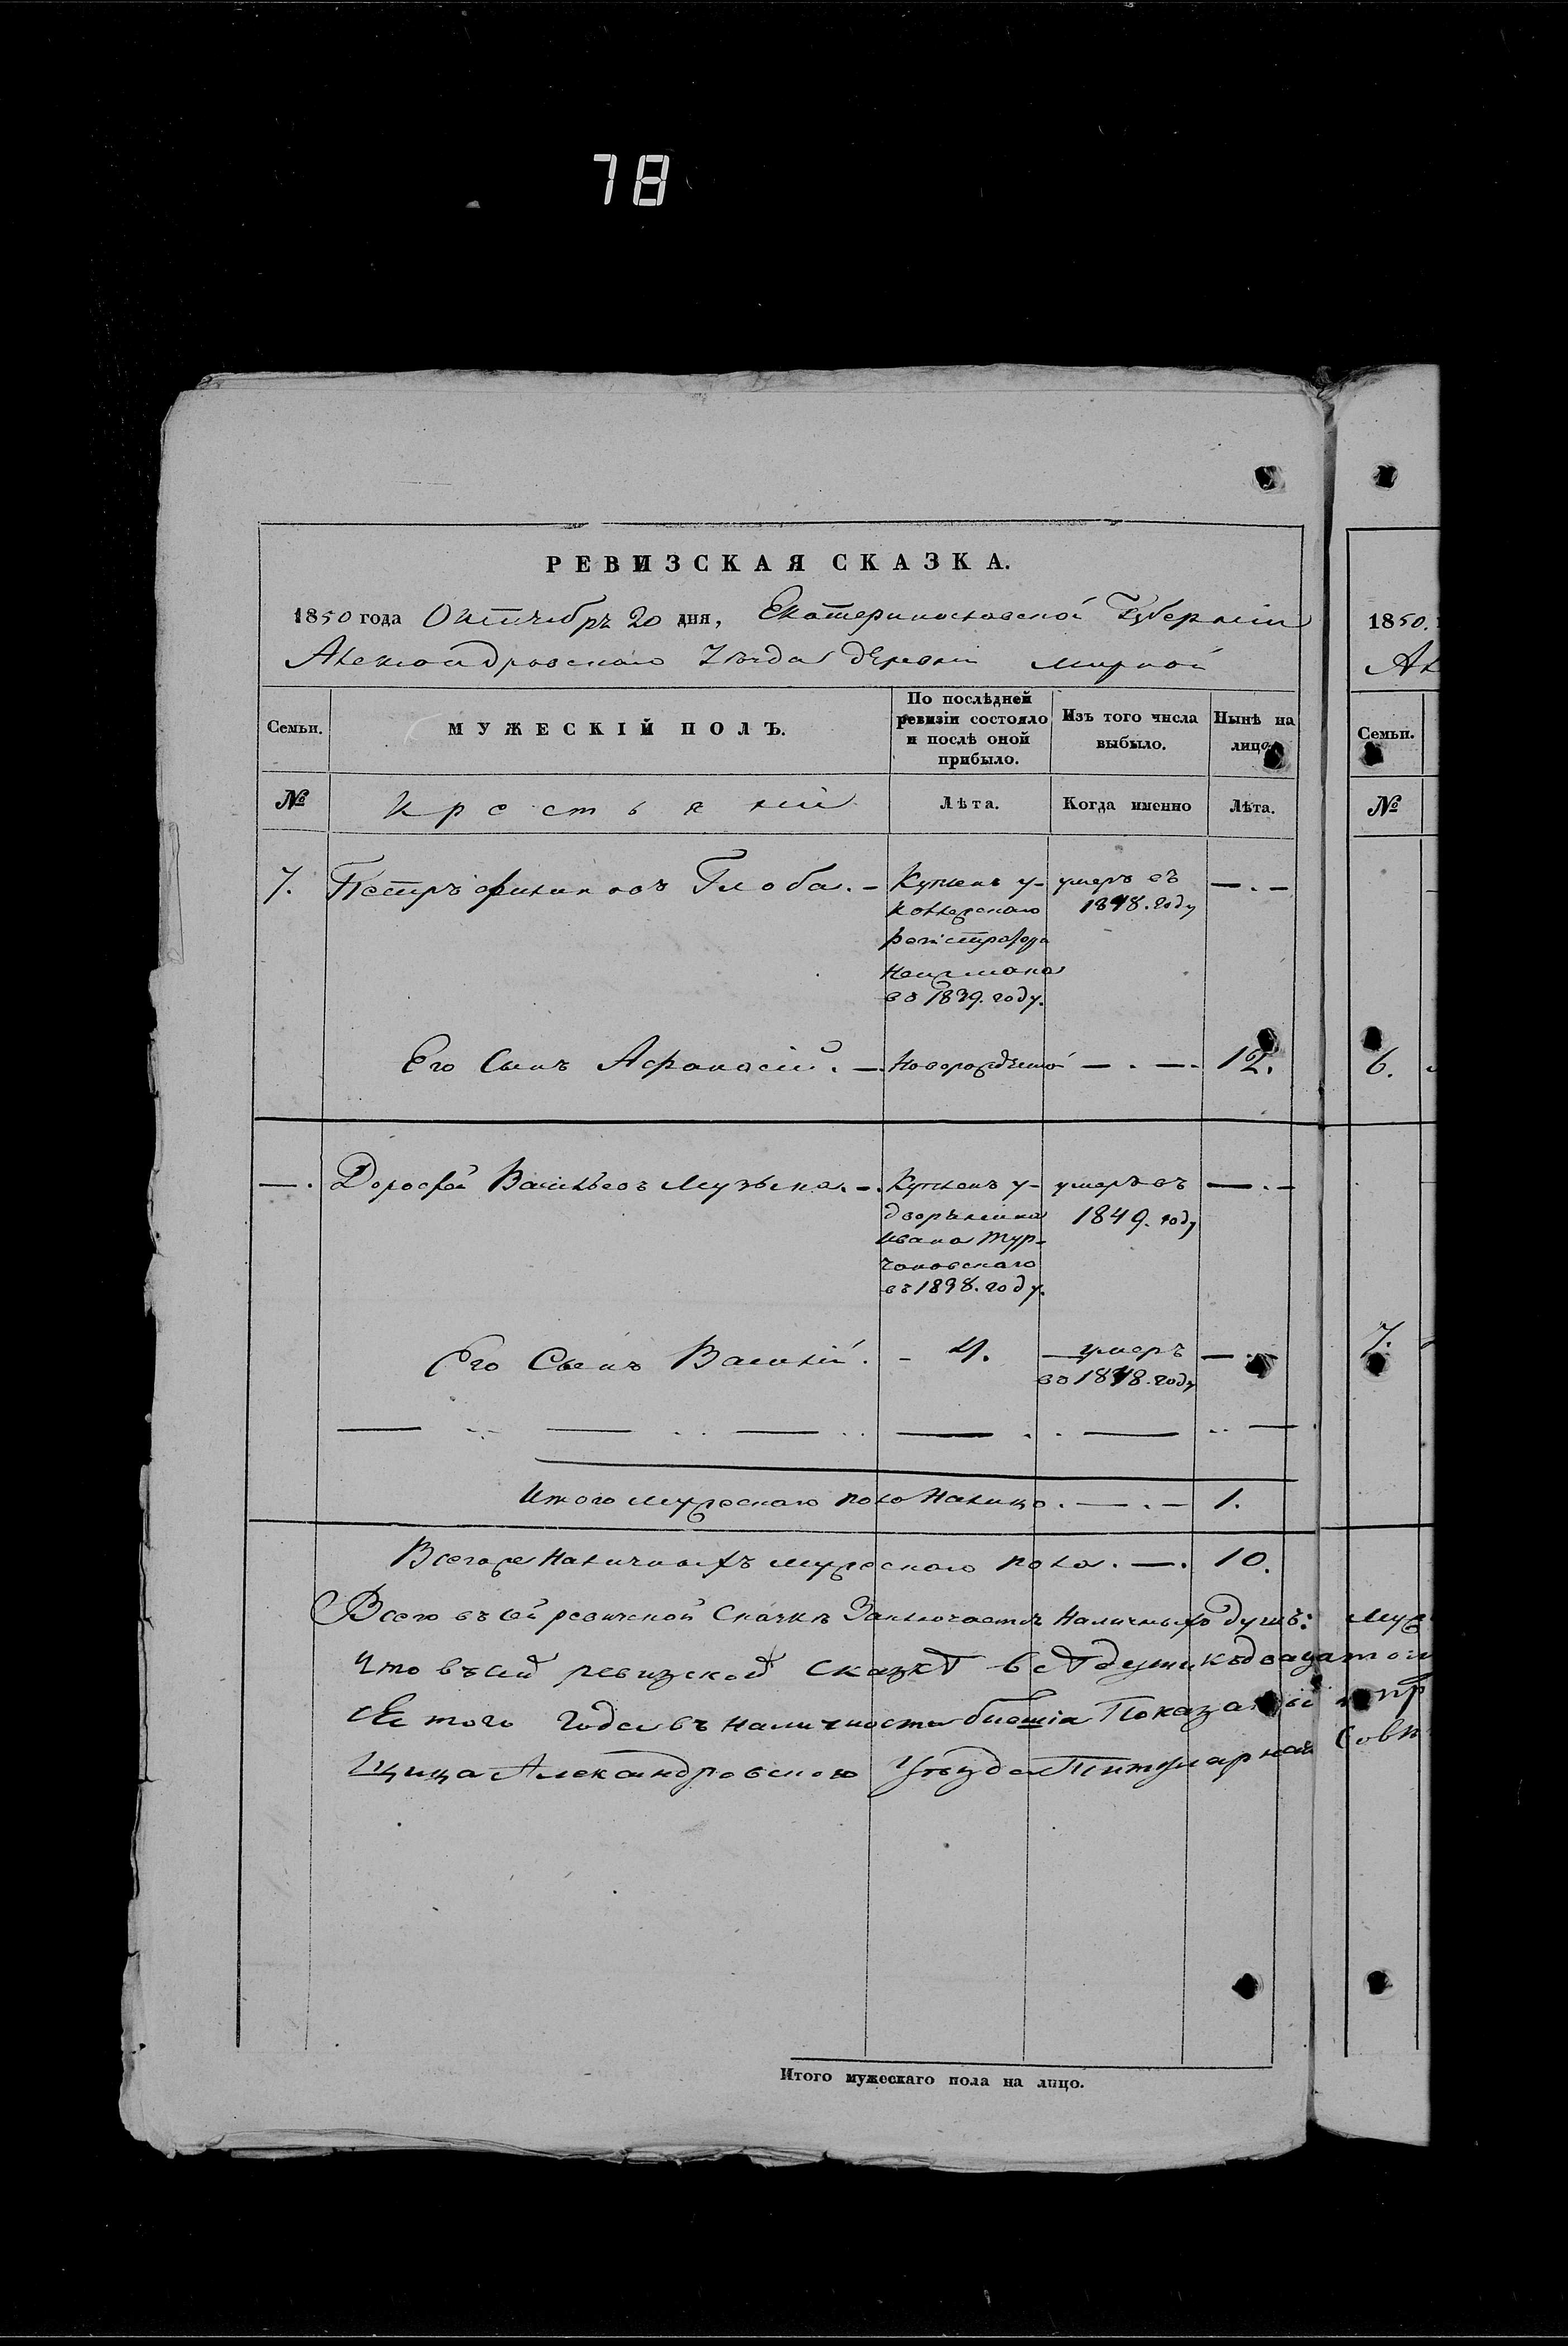 78
РЕВИЗСКАЯ СКАЗКА.
1850 года Октября 20 дня, Екатеринославской Губерніи
Александровскаго Уезда деревни Мирной
Семьи.
МУЖЕСКІЙ ПОЛЪ.
По послѣдней
ревизіи состояло
и послѣ оной
прибыло.
Изъ того числа
выбыло.
Нынѣ на
лицо.
№
Крестьяніи
Лѣта.
Когда именно
Лѣта.
7. Петръ Филиповъ Глоба. –
Купленъ у
Коллежскаго
регистратора
в 1839. году.
умеръ въ
1848. году
— . –
Его Сынъ Афанасій. –
Новорожденной
— . —.
12.
— . Дорофей Васильевъ Музыка. –.
Купленъ у
дворянина
Ивана Тур-
чановскаго
въ 1838. году.
умеръ въ
1849. году
— . –
Его Сынъ Василій. –
4.
умеръ
во 1848. году
Итого мужескаго пола Налицо. — . – 1.
Всегоже Наличныхъ мужескаго пола. —. 10.
Всего въ сей ревизской Сказкѣ Заключается Наличныхъ душъ:
Что въ сей ревизской сказкѣ все души къ двадцатому
сего года въ наличности бывшія Показаны и
Александровскаго Уѣзда Титулярная
Итого мужескаго пола на лицо.
1850.
Семьи.
№
6.
7.